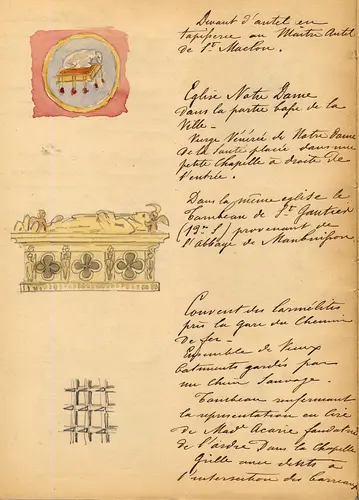 Devant d'autel en
tapisserie au Maître Autel
de St Maclou.
Eglise Notre Dame
dans la partie basse de la
Ville -
Vierge Vénérée de Notre Dame
de la Santé placée dans une
petite Chapelle à droite de
l'entrée.
Dans la même eglise le
Tombeau de St Gautier
(13e S) provenant de
l'abbaye de Maubuisson
Couvent des Carmélites
près la gare du Chemin
de fer -
Ensemble de Vieux
batiments gardés par
un Chien Sauvage.
Tombeau renfermant
la représentation en Cire
de Made Acarie fondatrice
de l'ordre Dans la Chapelle
Grille avec
l'intersection des barreaux